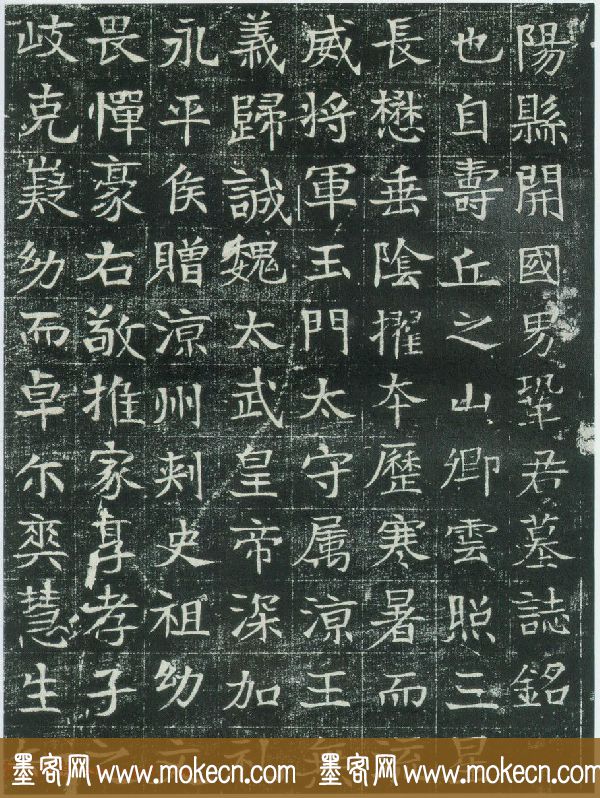 陽縣開國男鞏君墓誌銘
也自壽丘之山卿雲照三星
長懋垂陰擢本歷寒暑而
威将軍玉門太守属涼王
義歸誠魏太武皇帝深加礼
永平侯贈涼州刾史祖幼
畏憚豪右敬推家享孝子之
歧克嶷幼而卓尔奕慧生
墨客网 www.mokecn.com 墨客网 www.mokecn.com